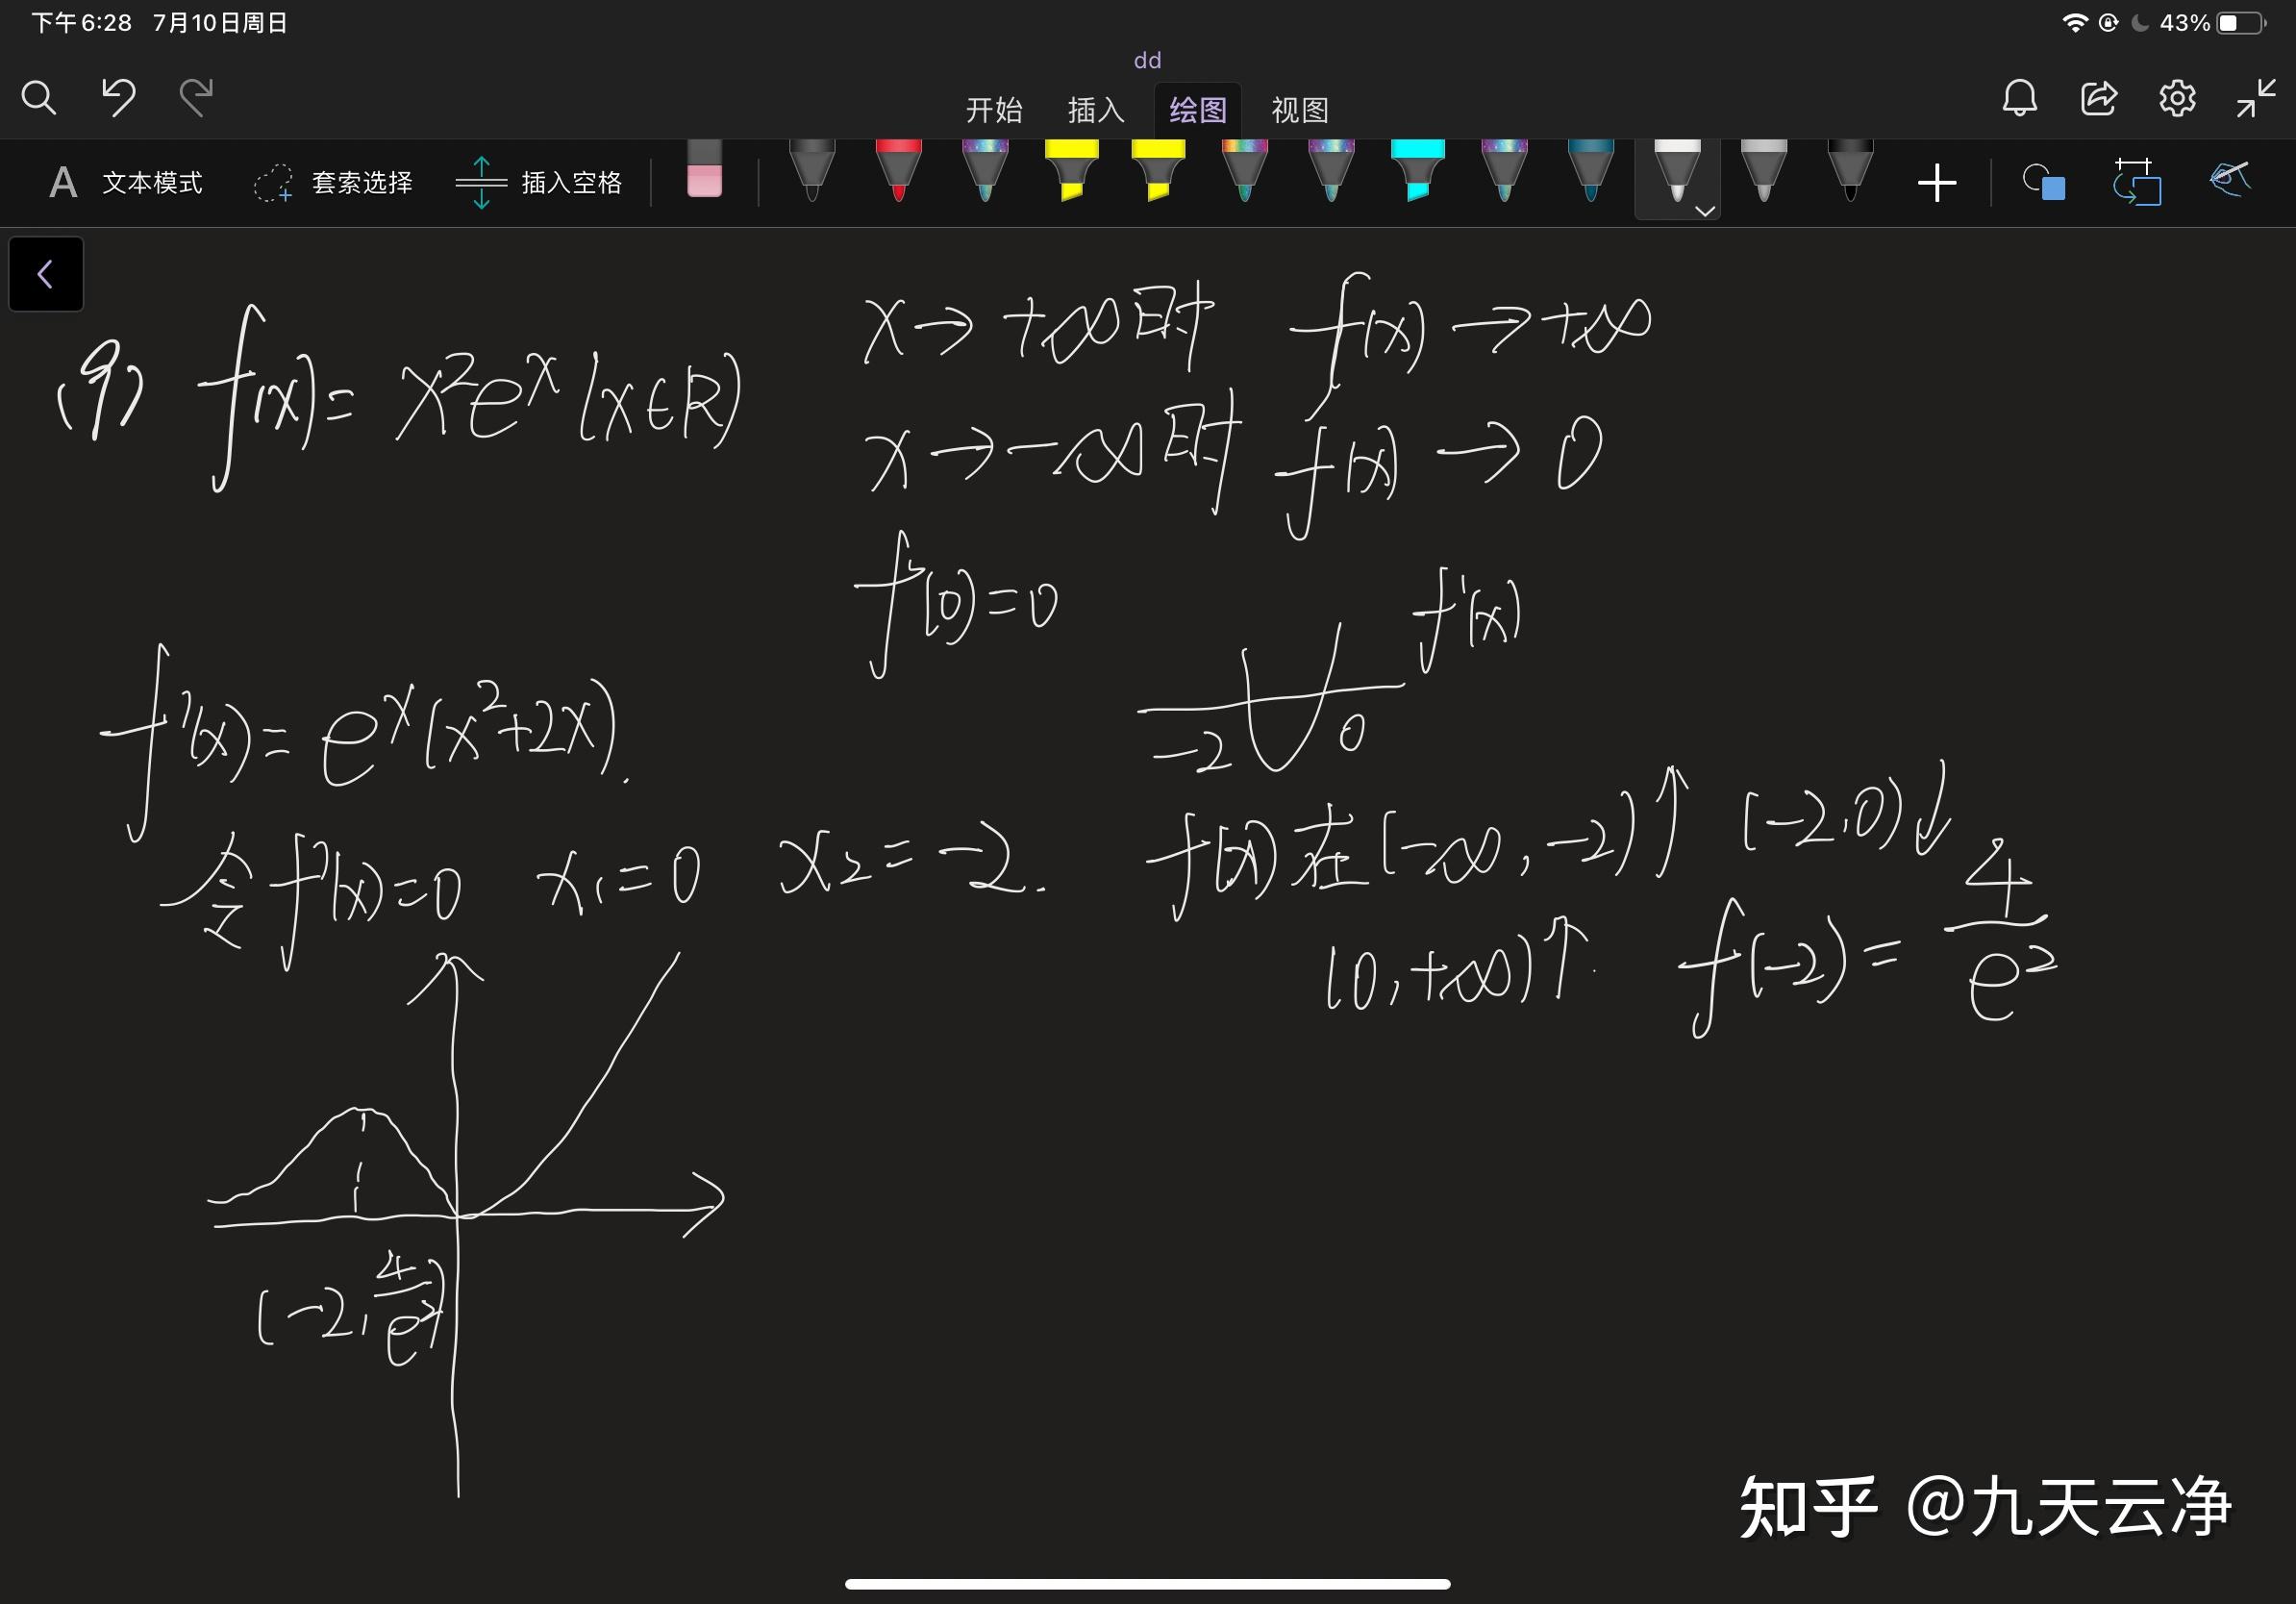 下午6:28 7月10日周日
43%
dd
开始 插入 绘图 视图
A 文本模式 套索选择 插入空格
(9) f(x)= x²eˣ (x∈R)
x→+∞时 f(x)→+∞
x→-∞时 f(x)→0
f(0)=0
f'(x)
-2 0
f'(x)= eˣ(x²+2x).
令f'(x)=0 x₁=0 x₂=-2.
f(x)在(-∞,-2)↑ (-2,0)↓
(0,+∞)↑. f(-2)=4/e²
(-2,4/e²)
知乎 @九天云净